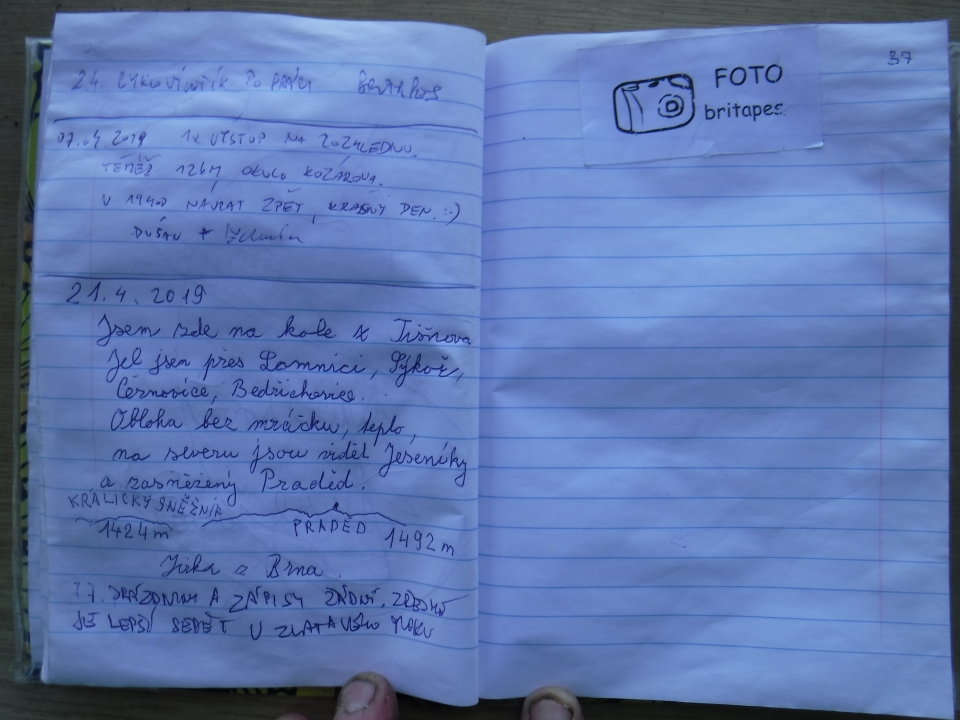 PO PRÁCI
07.04.2019 1x VÝSTUP NA ROZHLEDNU.
TÉMĚŘ 12km OKOLO KOZÁROVA.
V 1940 NÁVRAT ZPĚT, KRÁSNÝ DEN :-)
DUŠAN +
21.4.2019
Jsem zde na kole z Tišnova
Jel jsem přes Lomnici, Sýkoř,
Černovice, Bedřichovice.
Obloha bez mráčku, teplo,
na severu jsou vidět Jeseníky
a zasněžený Praděd.
KRÁLICKÝ SNĚŽNÍK
1424 m PRADĚD 1492 m
Jirka z Brna.
A ZÁPISY ŽÁDNÝ.
JE LEPŠÍ SEDĚT U ZLATAVÉHO MOKU
37
FOTO
britapes